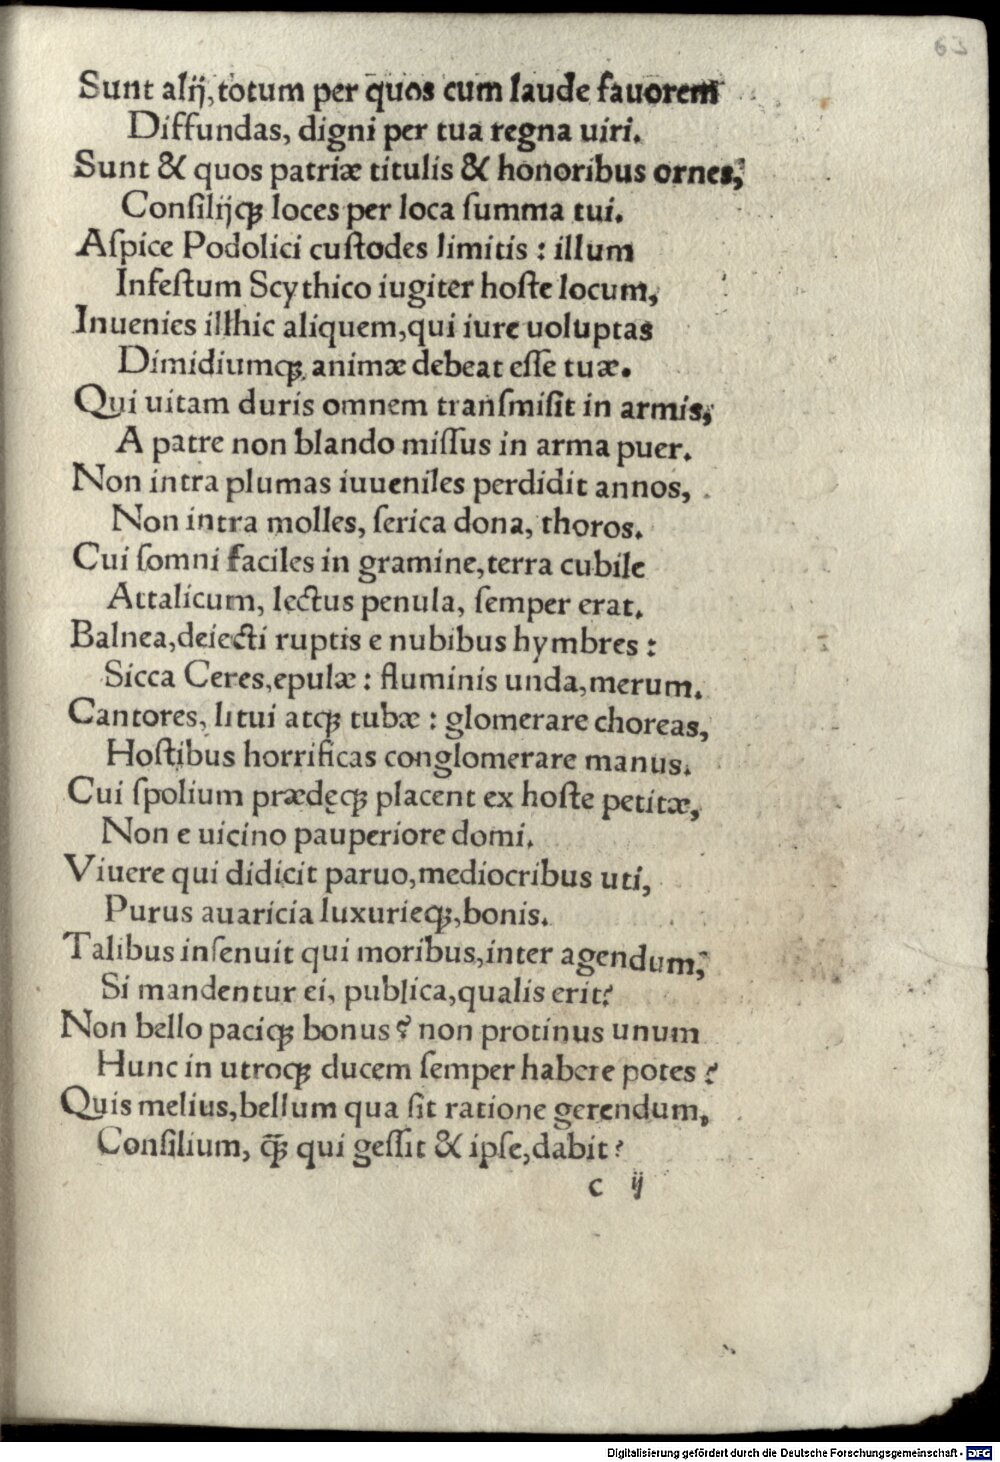 63
Sunt alij, totum per quos cum laude fauorem
Diffundas, digni per tua regna uiri.
Sunt & quos patriæ titulis & honoribus ornes,
Consilijqꝫ loces per loca summa tui.
Aſpice Podolici cuſtodes limitis : illum
Infeſtum Scythico iugiter hoſte locum,
Inuenies illhic aliquem, qui iure uoluptas
Dimidiumqꝫ animæ debeat eſſe tuæ.
Qui uitam duris omnem tranſmiſit in armis,
A patre non blando miſſus in arma puer.
Non intra plumas iuueniles perdidit annos,
Non intra molles, ſerica dona, thoros.
Cui ſomni faciles in gramine, terra cubile
Attalicum, lectus penula, ſemper erat.
Balnea, deiecti ruptis e nubibus hymbres :
Sicca Ceres, epulæ : fluminis unda, merum.
Cantores, litui atqꝫ tubæ : glomerare choreas,
Hoſtibus horrificas conglomerare manus.
Cui ſpolium prædęqꝫ placent ex hoſte petitæ,
Non e uicino pauperiore domi.
Viuere qui didicit paruo, mediocribus uti,
Purus auaricia luxurieqꝫ, bonis.
Talibus inſenuit qui moribus, inter agendum,
Si mandentur ei, publica, qualis erit?
Non bello paciqꝫ bonus? non protinus unum
Hunc in utroqꝫ ducem ſemper habere potes?
Quis melius, bellum qua ſit ratione gerendum,
Conſilium, q̄ꝫ qui geſſit & ipſe, dabit?
c ij
Digitalisierung gefördert durch die Deutsche Forschungsgemeinschaft - DFG